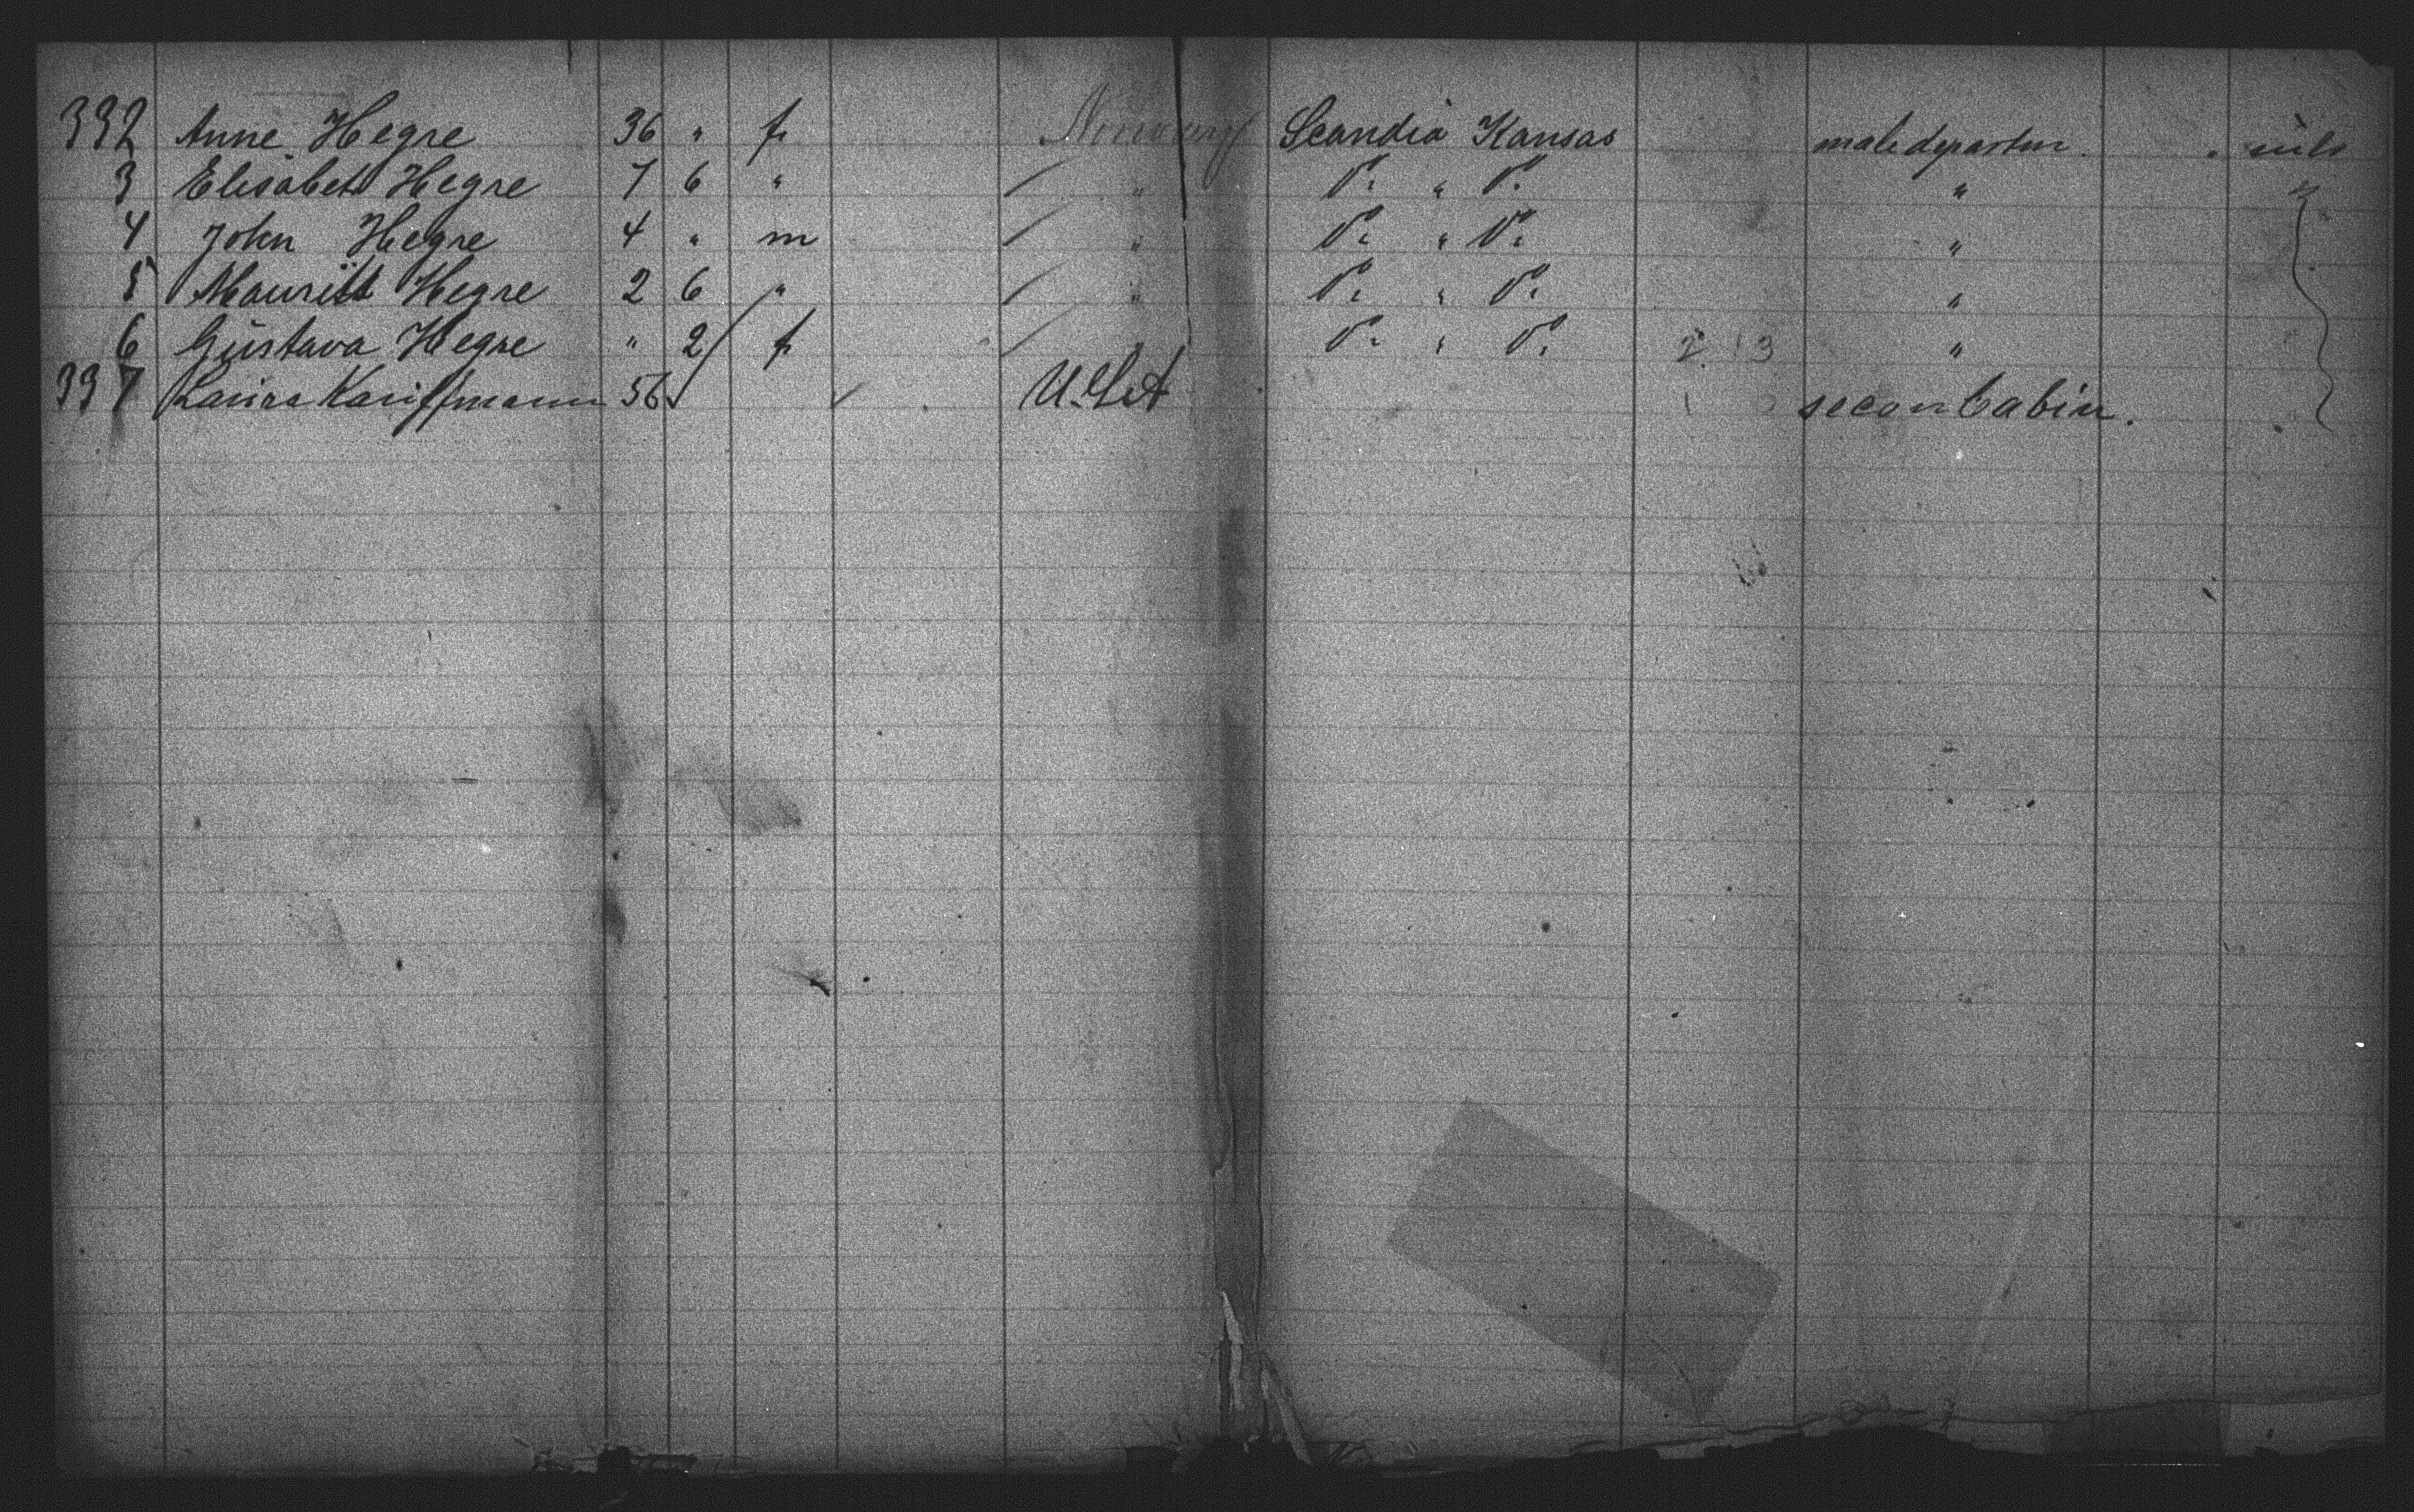 332 Anne Hegre 36 " f Norway Scandia Kansas male departm. nils
3 Elisabeth Hegre 7 6 " / " Do " Do "
4 John Hegre 4 " m / " Do " Do "
5 Mauritt Hegre 2 6 " / " Do " Do "
6 Gustava Hegre " 2 f / " Do " Do 2 13 "
337 Laura Kauffmann 56 U.S.A secon Cabin.